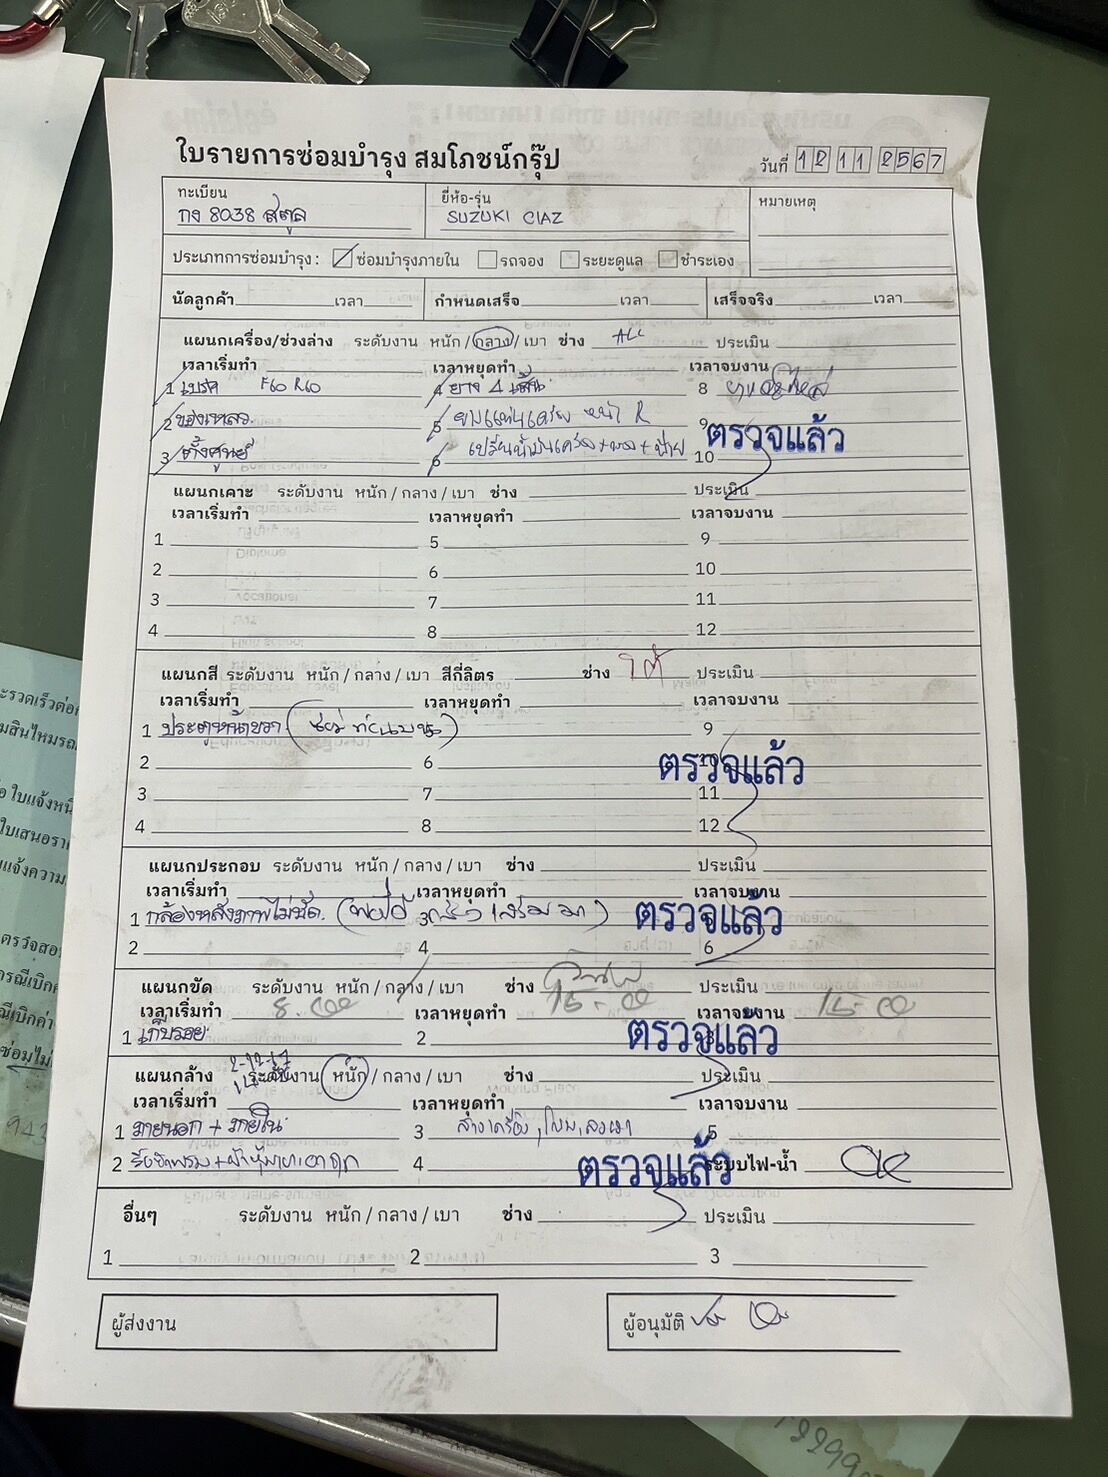 ใบรายการซ่อมบำรุง สมโภชน์กรุ๊ป
วันที่ 12 11 2567
ทะเบียน
กง 8038 สตูล
ยี่ห้อ-รุ่น
SUZUKI CIAZ
หมายเหตุ
ประเภทการซ่อมบำรุง : ซ่อมบำรุงภายใน รถจอง ระยะดูแล ชำระเอง
นัดลูกค้า เวลา กำหนดเสร็จ เวลา เสร็จจริง เวลา
แผนกเครื่อง/ช่วงล่าง ระดับงาน หนัก / กลาง / เบา ช่าง ประเมิน
เวลาเริ่มทำ เวลาหยุดทำ เวลาจบงาน
1 เบรค F60 R60 4 ยาง 4 เส้น 8
2 ของเหลว 5 ยางแท่นเครื่อง หน้า R 9
ตรวจแล้ว
3 ตั้งศูนย์ 6 เปลี่ยนน้ำมันเครื่อง 10
แผนกเคาะ ระดับงาน หนัก / กลาง / เบา ช่าง ประเมิน
เวลาเริ่มทำ เวลาหยุดทำ เวลาจบงาน
1 5 9
2 6 10
3 7 11
4 8 12
แผนกสี ระดับงาน หนัก / กลาง / เบา สีกี่ลิตร ช่าง ประเมิน
เวลาเริ่มทำ เวลาหยุดทำ เวลาจบงาน
1 ประตูหน้าขวา 9
2 6 10
ตรวจแล้ว
3 7 11
4 8 12
แผนกประกอบ ระดับงาน หนัก / กลาง / เบา ช่าง ประเมิน
เวลาเริ่มทำ เวลาหยุดทำ เวลาจบงาน
1 กล้องหลังภาพไม่ชัด. 3
ตรวจแล้ว
2 4 6
แผนกขัด ระดับงาน หนัก / กลาง / เบา ช่าง ประเมิน
เวลาเริ่มทำ 8.00 เวลาหยุดทำ 15-00 เวลาจบงาน 15-00
1 เก็บรอย 2 3
ตรวจแล้ว
แผนกล้าง ระดับงาน หนัก / กลาง / เบา ช่าง ประเมิน
เวลาเริ่มทำ เวลาหยุดทำ เวลาจบงาน
1 ภายนอก + ภายใน 3 ล้างเครื่อง 5
2 4 ระบบไฟ-น้ำ
ตรวจแล้ว
อื่นๆ ระดับงาน หนัก / กลาง / เบา ช่าง ประเมิน
1 2 3
ผู้ส่งงาน
ผู้อนุมัติ